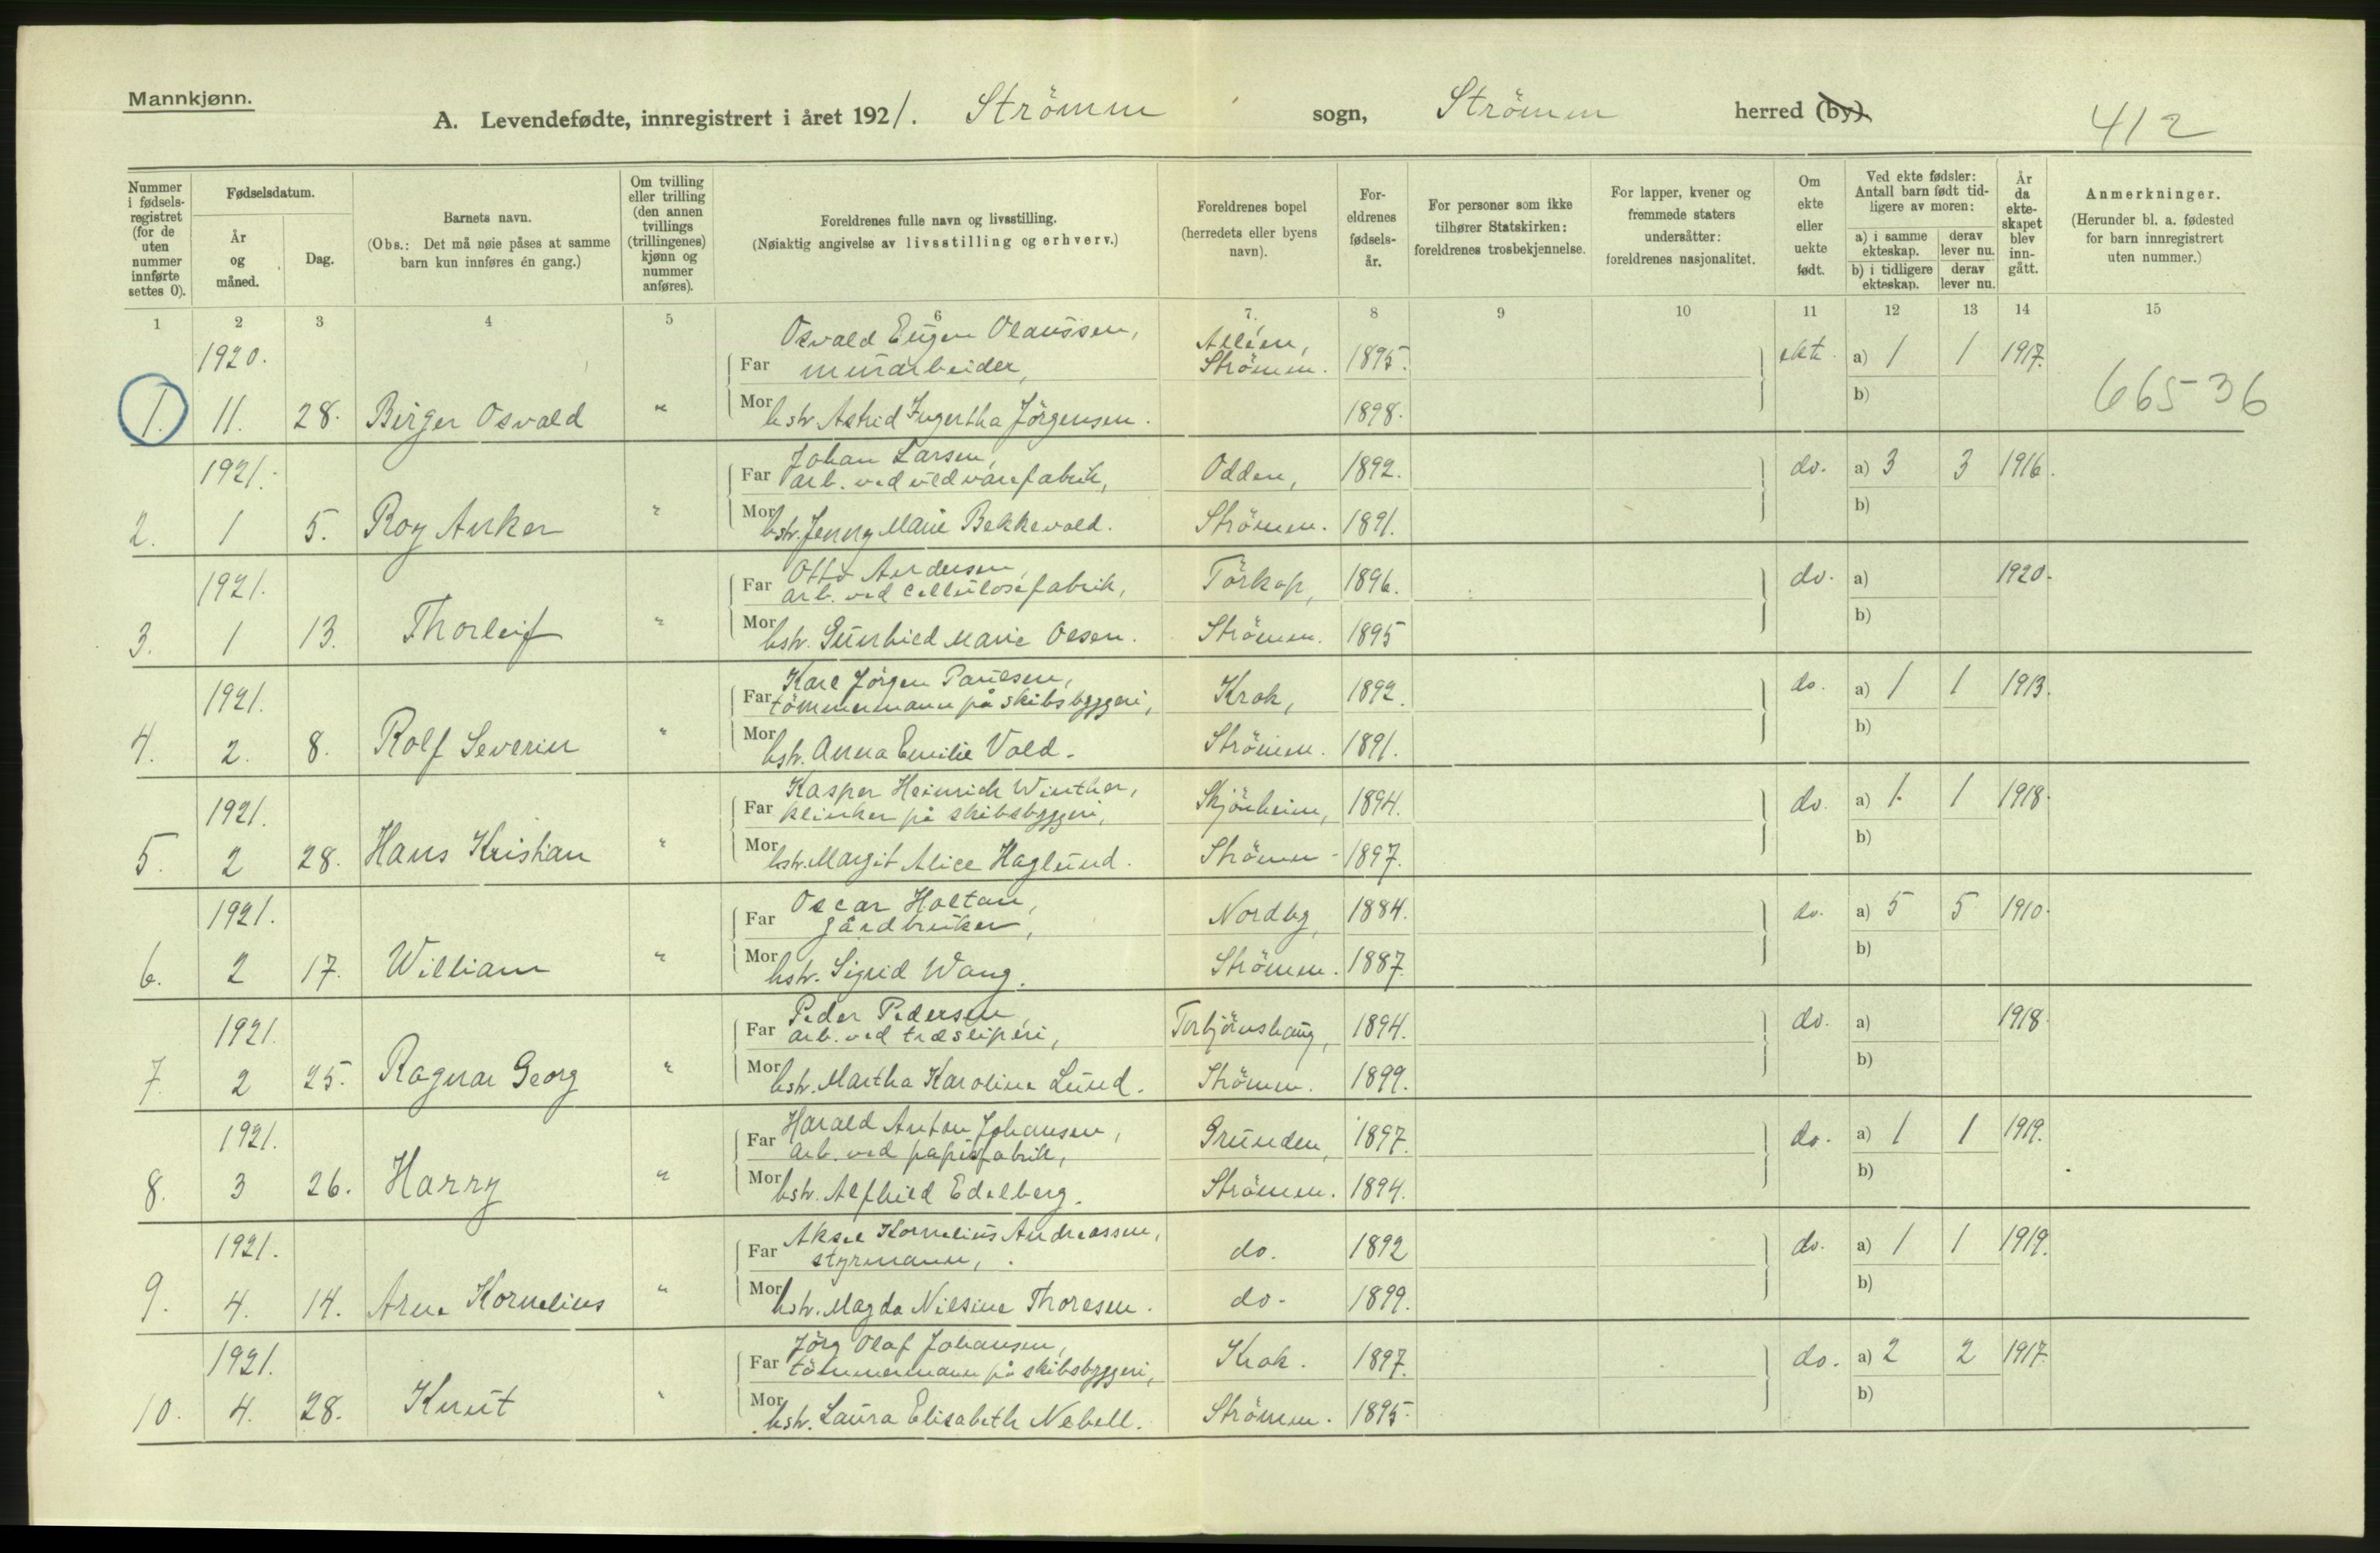 Mannkjønn.
A. Levendefødte, innregistrert i året 1921. Strömm sogn, Strömm herred (by).
412
Nummer i fødselsregistret (for de uten nummer innførte settes 0).
Fødselsdatum.
År og måned.
Dag.
Barnets navn.
(Obs.: Det må nøie påses at samme barn kun innføres én gang.)
Om tvilling eller trilling (den annen tvillings (trillingenes) kjønn og nummer anføres).
Foreldrenes fulle navn og livsstilling.
(Nøiaktig angivelse av livsstilling og erhverv.)
Foreldrenes bopel (herredets eller byens navn).
Foreldrenes fødselsår.
For personer som ikke tilhører Statskirken: foreldrenes trosbekjennelse.
For lapper, kvener og fremmede staters undersåtter: foreldrenes nasjonalitet.
Om ekte eller uekte født.
Ved ekte fødsler: Antall barn født tidligere av moren:
a) i samme ekteskap. derav lever nu.
b) i tidligere ekteskap. derav lever nu.
År da ekteskapet blev inngått.
Anmerkninger.
(Herunder bl. a. fødested for barn innregistrert uten nummer.)
1 2 3 4 5 6 7. 8 9 10 11 12 13 14 15
Osvald Eugen Olaussen, Alléen,
1920. Far murarbeider, Strömm. 1895. ekte. a) 1 1 1917.
1. 11. 28. Birger Osvald " Mor hstr. Astrid Ingertha Jörgensen. 1898. b) 66536
Johan Larsen,
1921. Far arb. ved uldvarefabrik, Odden, 1892. do. a) 3 3 1916.
2. 1 5. Roy Anker " Mor hstr. Jenny Marie Bekkevold. Strömm. 1891. b)
Otto Andersen,
1921. Far arb. ved cellulosefabrik, Törkop, 1896. do. a) 1920.
3. 1 13. Thorleif " Mor hstr. Gunhild Marie Olsen. Strömm. 1895 b)
Karl Jörgen Paulsen,
1921. Far tömmermann på skibsbyggeri, Krok, 1892. do. a) 1 1 1913.
4. 2. 8. Rolf Severin " Mor hstr. Anna Emilie Vold. Strömm. 1891. b)
Kasper Heinrich Winther,
1921. Far klinker på skibsbyggeri, Skjönheim, 1894. do. a) 1. 1 1918.
5. 2 28. Hans Kristian " Mor hstr. Margit Alice Haglund. Strömm - 1897. b)
Oscar Holtan,
1921. Far gårdbruker, Nordby, 1884. do. a) 5 5 1910.
6. 2 17. William " Mor hstr. Sigrid Wang. Strömm. 1887. b)
Peder Pedersen,
1921. Far arb. ved træsliperi, Torbjörnshaug, 1894. do. a) 1918.
7. 2 25. Ragnar Georg " Mor hstr. Martha Karoline Lund. Strömm. 1899. b)
Harald Anton Johansen,
1921. Far arb. ved papirfabrik, Grunden, 1897. do. a) 1 1 1919.
8. 3 26. Harry " Mor hstr. Alfhild Edelberg. Strömm. 1894. b)
Aksel Kornelius Andreassen,
1921. Far styrmann, do. 1892 do. a) 1 1 1919.
9. 4. 14. Arne Kornelius " Mor hstr. Magda Nilsine Thoresen. do. 1899. b)
Jörg Olaf Johansen,
1921. Far tömmermann på skibsbyggeri, Krok. 1897. do. a) 2 2 1917
10. 4. 28. Knut " Mor hstr. Laura Elisabeth Nebell. Strömm. 1895. b)